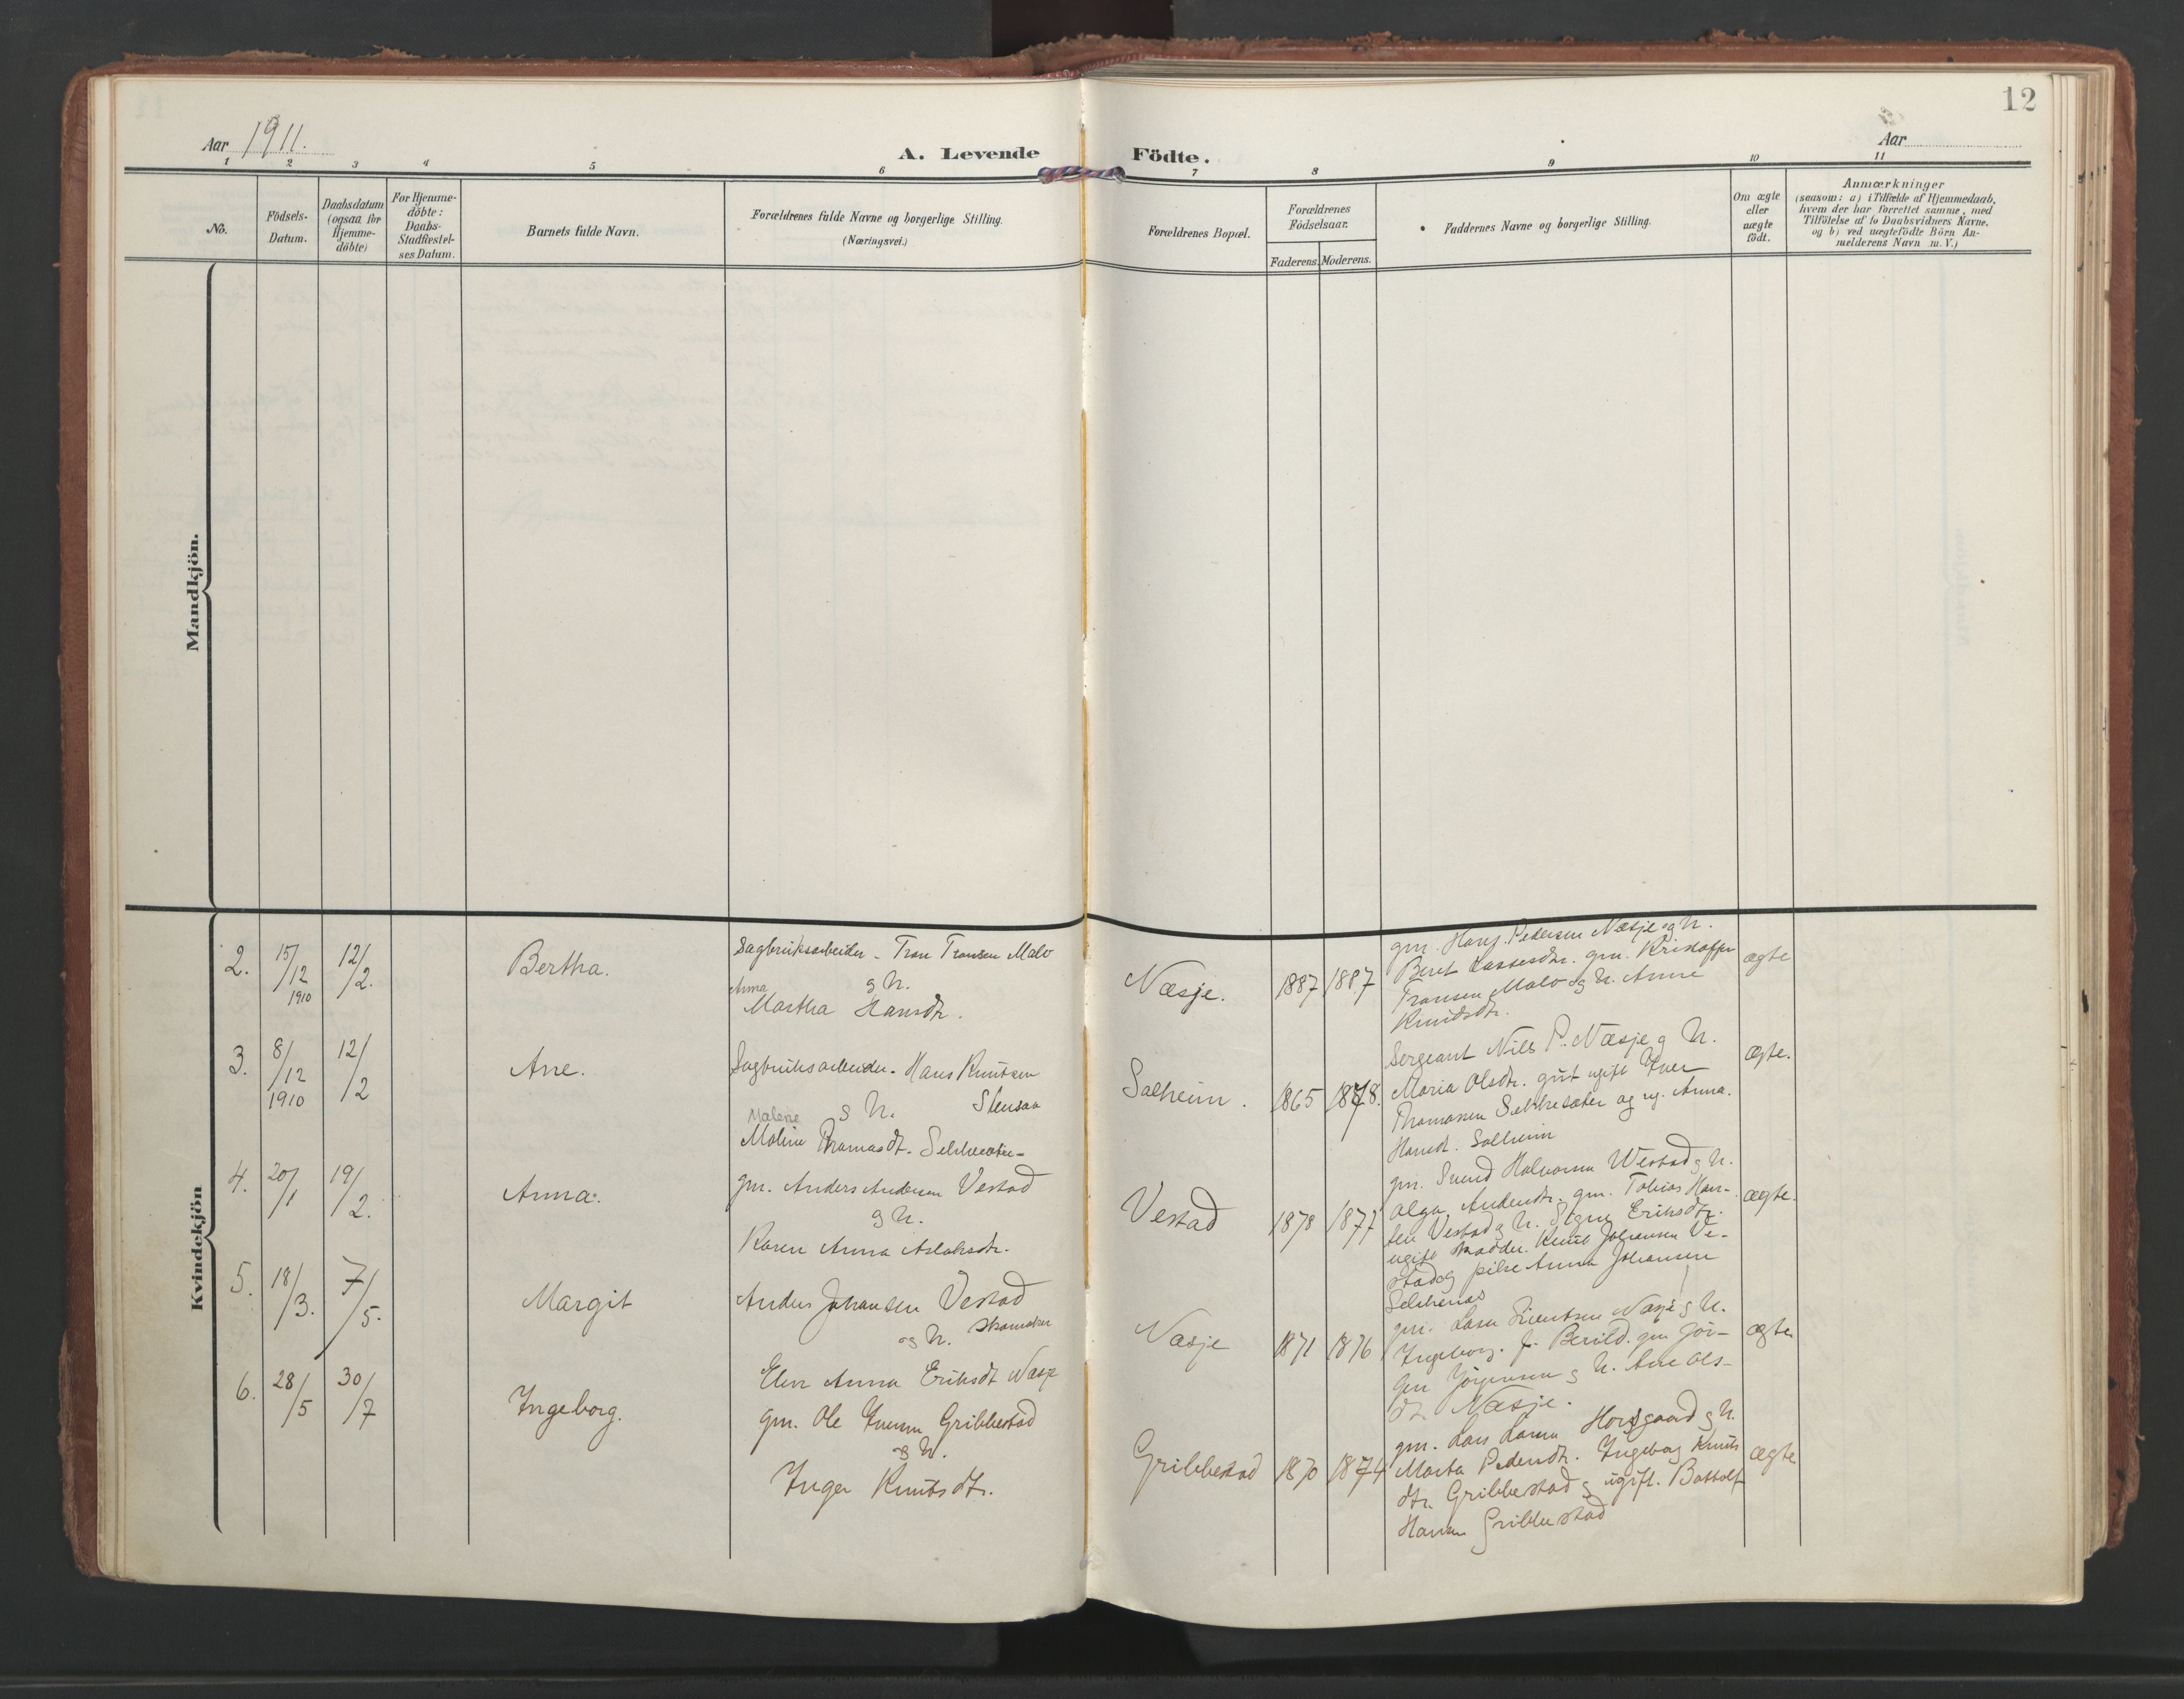 12
Aar 1911.
A. Levende Födte.
Aar
1 2 3 4 5 6 7 8 9 10 11
No.
Födsels-
Datum.
Daabsdatum
(ogsaa for
Hjemme-
döbte)
For Hjemme-
döbte:
Daabs-
Stadfæstel-
ses Datum.
Barnets fulde Navn.
Forældrenes fulde Navne og borgerlige Stilling.
(Næringsvei.)
Forældrenes Bopæl.
Forældrenes
Födselsaar.
Faderens. Moderens.
Faddernes Navne og borgerlige Stilling.
Om ægte
eller
uægte
födt.
Anmærkninger
(saasom: a) i Tilfælde af Hjemmedaab,
hvem der har forrettet samme, med
Tilföielse af to Daabsvidners Navne.
og b) ved uægtefödte Börn An-
melderens Navn m.V.)
Mandkjön.
Kvindekjön
2.
15/12
1910
12/2.
Bertha.
Sagbruksarbeider - Tron Tronsen Malo
g H.
Anna
Martha Hansdtr.
Næsje.
1887 1887
gm. Hans Pedersen Næsje og H.
Beret Lassesdtr. gm. Kristoffer
Tronsen Malo og H. Anne
Knudsdtr.
ægte
3.
8/12
1910
12/2
Ane.
Sagbruksarbeider. Hans Knutsen
g H. Stensaa
Malene
Malene Thomasdt.
Solheim.
1865 1878.
Sergeant Nils P. Næsje g H.
Maria Olsdtr. gut ugift Iver
Thomassen og ug. Anna.
Hansdt. Solheim
ægte.
4.
20/1
19/2.
Anna.
gm. Anders Andersen Vestad
g H.
Karen Anna Aslaksdtr.
Vestad
1878 1877
gm. Svend Halvorsen Westad g H.
Olga Andersdtr. gm. Tobias Han-
sen Vestad g H. Signe Eriksdtr.
ugift Knut Johansen Ve-
stad og pike Anna Johansen
ægte.
5.
18/3.
7/5.
Margit
Anders Johansen Vestad
og H. skomaker
Elen Anna Eriksdt Næsje
Næsje
1871 1876
gm. Lars Næsje g H.
Ingeborg gm Jör-
gen Jörgensen g H. Ane Ols-
dt. Næsje.
ægte
6.
28/5
30/7
Ingeborg.
gm. Ole Iversen Gribbestad
g H.
Inger Knutsdtr.
Gribbestad
1870 1874
gm. Lars Larsen Horsgaard g H.
Marta Pedersdtr. Ingeborg Knuts
dtr. Gribbestad g ugift. Bottolf
Hansen Gribbestad
ægte